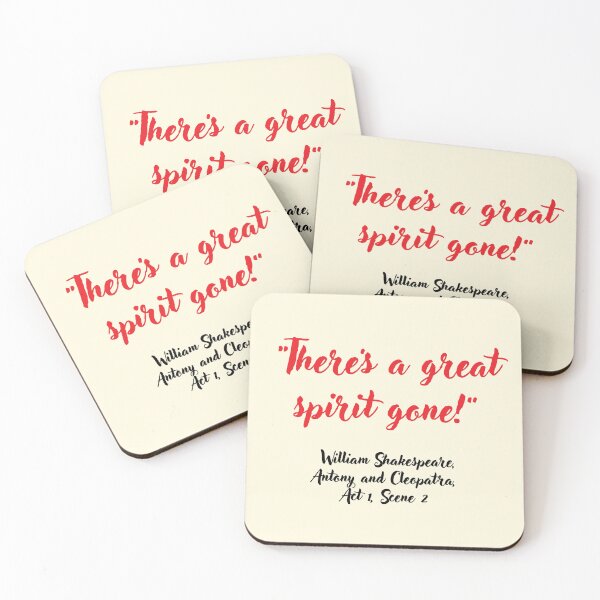 "There's a great
spirit gone!"
"There's a great
spirit gone!"
William Shakespeare,
"There's a great
spirit gone!"
William
Antony and
Act 1,
"There's a great
spirit gone!"
William Shakespeare,
Antony and Cleopatra,
Act 1, Scene 2